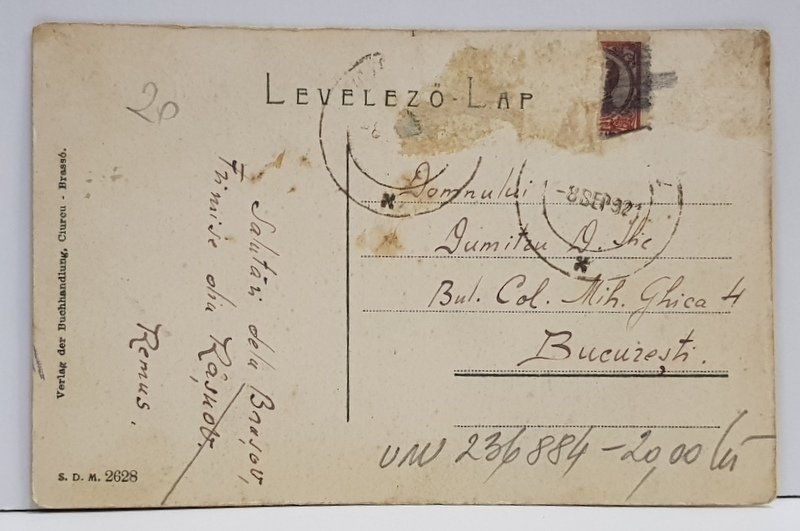 LEVELEZŐ-LAP
20
-8
-8 SEP 92
Domnului
Dumitru D. Ilie
Bul. Col. Mih. Ghica 4
Bucureşti.
Salutări dela Braşov,
Trimise din Râşnov
Remus.
236884-20,00 lei
Verlag der Buchhandlung, Ciurcu - Brassó.
S. D. M. 2628